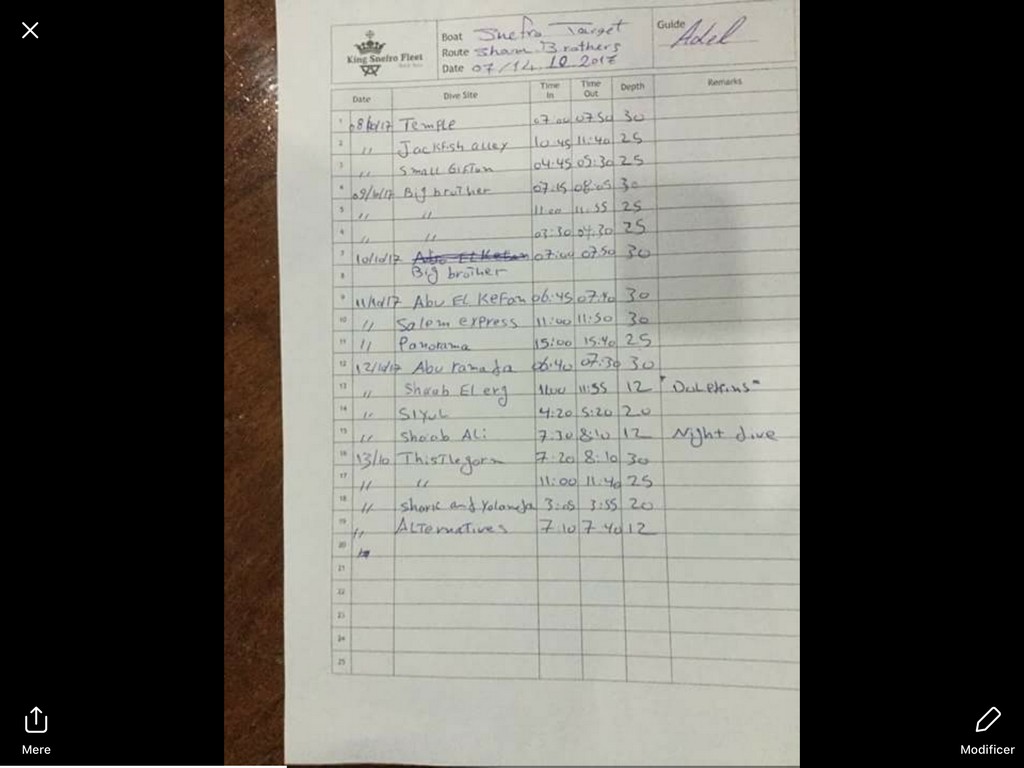 Boat Snefro Target
Guide Adel
King Snefro Fleet
Route Sham Brothers
Date 07/14.10.2017
Date Dive Site Time In Time Out Depth Remarks
1 08/10/17 Temple 07.00 07.50 30
2 " Jackfish alley 10.45 11.40 25
3 " Small Giftun 04.45 05.30 25
4 09/10/17 Big brother 07.15 08.05 30
5 " " 11.00 11.55 25
6 " " 03.30 04.30 25
7 10/10/17 Abo El Kefan 07:00 07.50 30
8 Big brother
9 11/10/17 Abu El Kefan 06.45 07.40 30
10 " Salem express 11:00 11:50 30
11 " Panorama 15:00 15.40 25
12 12/10/17 Abu ramada 06.40 07.30 30
13 " Shaab El erg 11.00 11.55 12 "Dolphins"
14 " Siyul 4:20 5:20 20
15 " Shaab Ali 7.30 8:10 12 Night dive
16 13/10 Thistlegorm 7.20 8:10 30
17 " " 11:00 11.40 25
18 " Shark and Yolanda 3:05 3:55 20
19 " Alternatives 7.10 7.40 12
20
21
22
23
24
25
Mere
Modificer